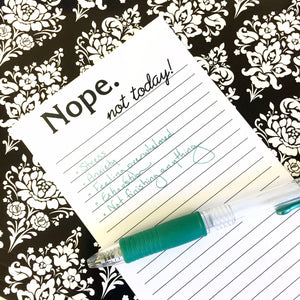 Nope.
not today!
• Stress
• Anxiety
• Feeling overwhelmed
• Exhaustion
• Not finishing anything